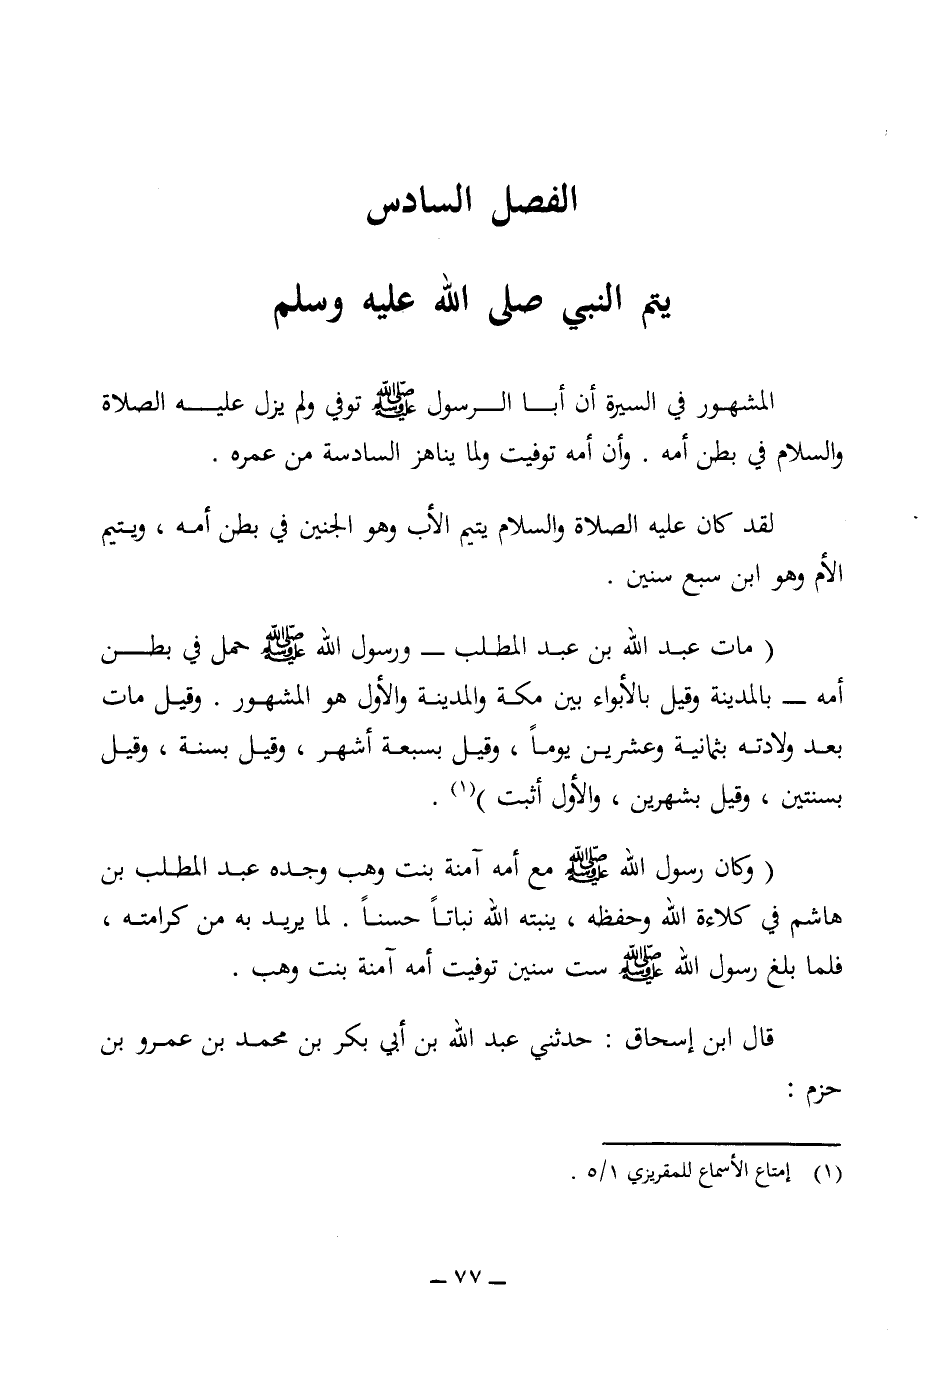 الفصل السادس
يتم النبي صلى الله عليه وسلم
المشهور في السيرة أن أبا الرسول ﷺ توفي ولم يزل عليه الصلاة
والسلام في بطن أمه . وأن أمه توفيت ولما يناهز السادسة من عمره .
لقد كان عليه الصلاة والسلام يتيم الأب وهو الجنين في بطن أمه ، ويتيم
الأم وهو ابن سبع سنين .
( مات عبد الله بن عبد المطلب ــ ورسول الله ﷺ حمل في بطن
أمه ــ بالمدينة وقيل بالأبواء بين مكة والمدينة والأول هو المشهور . وقيل مات
بعد ولادته بثمانية وعشرين يوماً ، وقيل بسبعة أشهر ، وقيل بسنة ، وقيل
بسنتين ، وقيل بشهرين ، والأول أثبت )(١) .
( وكان رسول الله ﷺ مع أمه آمنة بنت وهب وجده عبد المطلب بن
هاشم في كلاءة الله وحفظه ، ينبته الله نباتاً حسناً . لما يريد به من كرامته ،
فلما بلغ رسول الله ﷺ ست سنين توفيت أمه آمنة بنت وهب .
قال ابن إسحاق : حدثني عبد الله بن أبي بكر بن محمد بن عمرو بن
حزم :
(١) إمتاع الأسماع للمقريزي ٥/١ .
ــ ٧٧ ــ